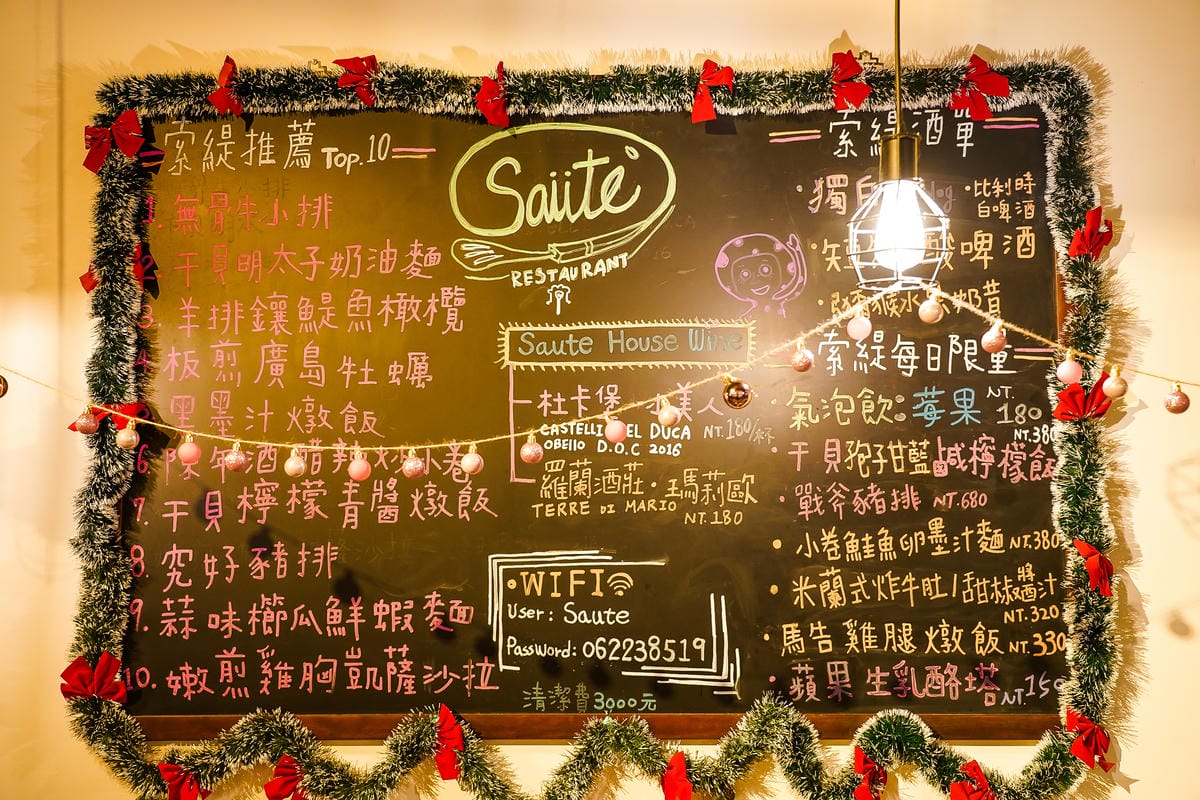 索緹推薦 Top.10
1. 無骨牛小排
2. 干貝明太子奶油麵
3. 羊排鑲鯷魚橄欖
4. 板煎廣島牡蠣
墨墨汁燉飯
6. 陳年酒醋辣炒小卷
7. 干貝檸檬青醬燉飯
8. 究好豬排
9. 蒜味櫛瓜鮮蝦麵
10. 嫩煎雞胸凱薩沙拉
Saüte
RESTAURANT
Saute House Wine
杜卡保 美人
CASTELLI DEL DUCA NT.180/杯
OBELLO D.O.C 2016
羅蘭酒莊·瑪莉歐
TERRE DI MARIO NT.180
·WIFI
User: Saute
PassWord: 062238519
清潔費3000元
索緹酒單
·獨
·比利時
白啤酒
酸啤酒
猴水 奶昔
索緹每日限量
·氣泡飲:莓果 NT.180
·干貝孢子甘藍鹹檸檬飯 NT.380
·戰斧豬排 NT.680
·小卷鮭魚卵墨汁麵 NT.380
·米蘭式炸牛肚/甜椒醬汁 NT.320
·馬告雞腿燉飯 NT.330
·蘋果生乳酪塔 NT.150